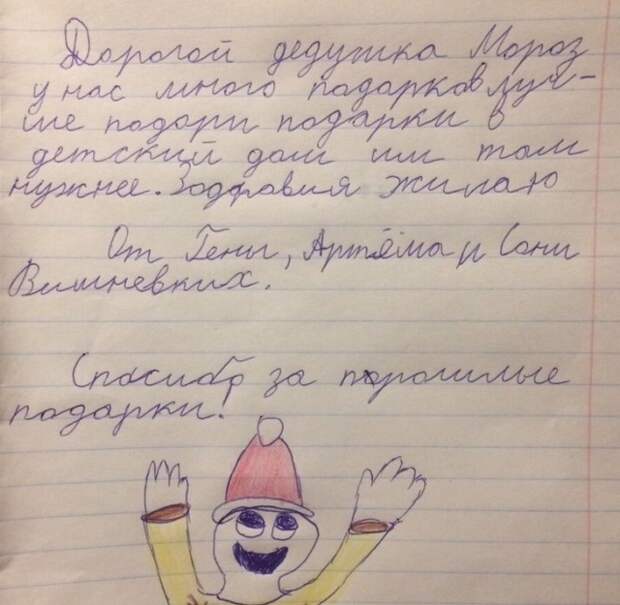 Дорогой дедушка Мороз
у нас много подарков луч-
ше подари подарки в
детский дом им там
нужнее. Здоровия жилаю
От Гены, Артёма и Сони
Вишневких.
Спасибо за порошлые
подарки!